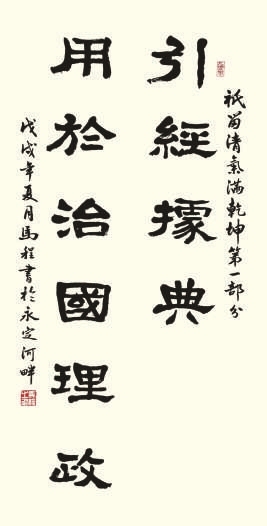 祇留清氣满乾坤第一部分
引經據典
用於治國理政
戊戌年夏月馬程書於永定河畔